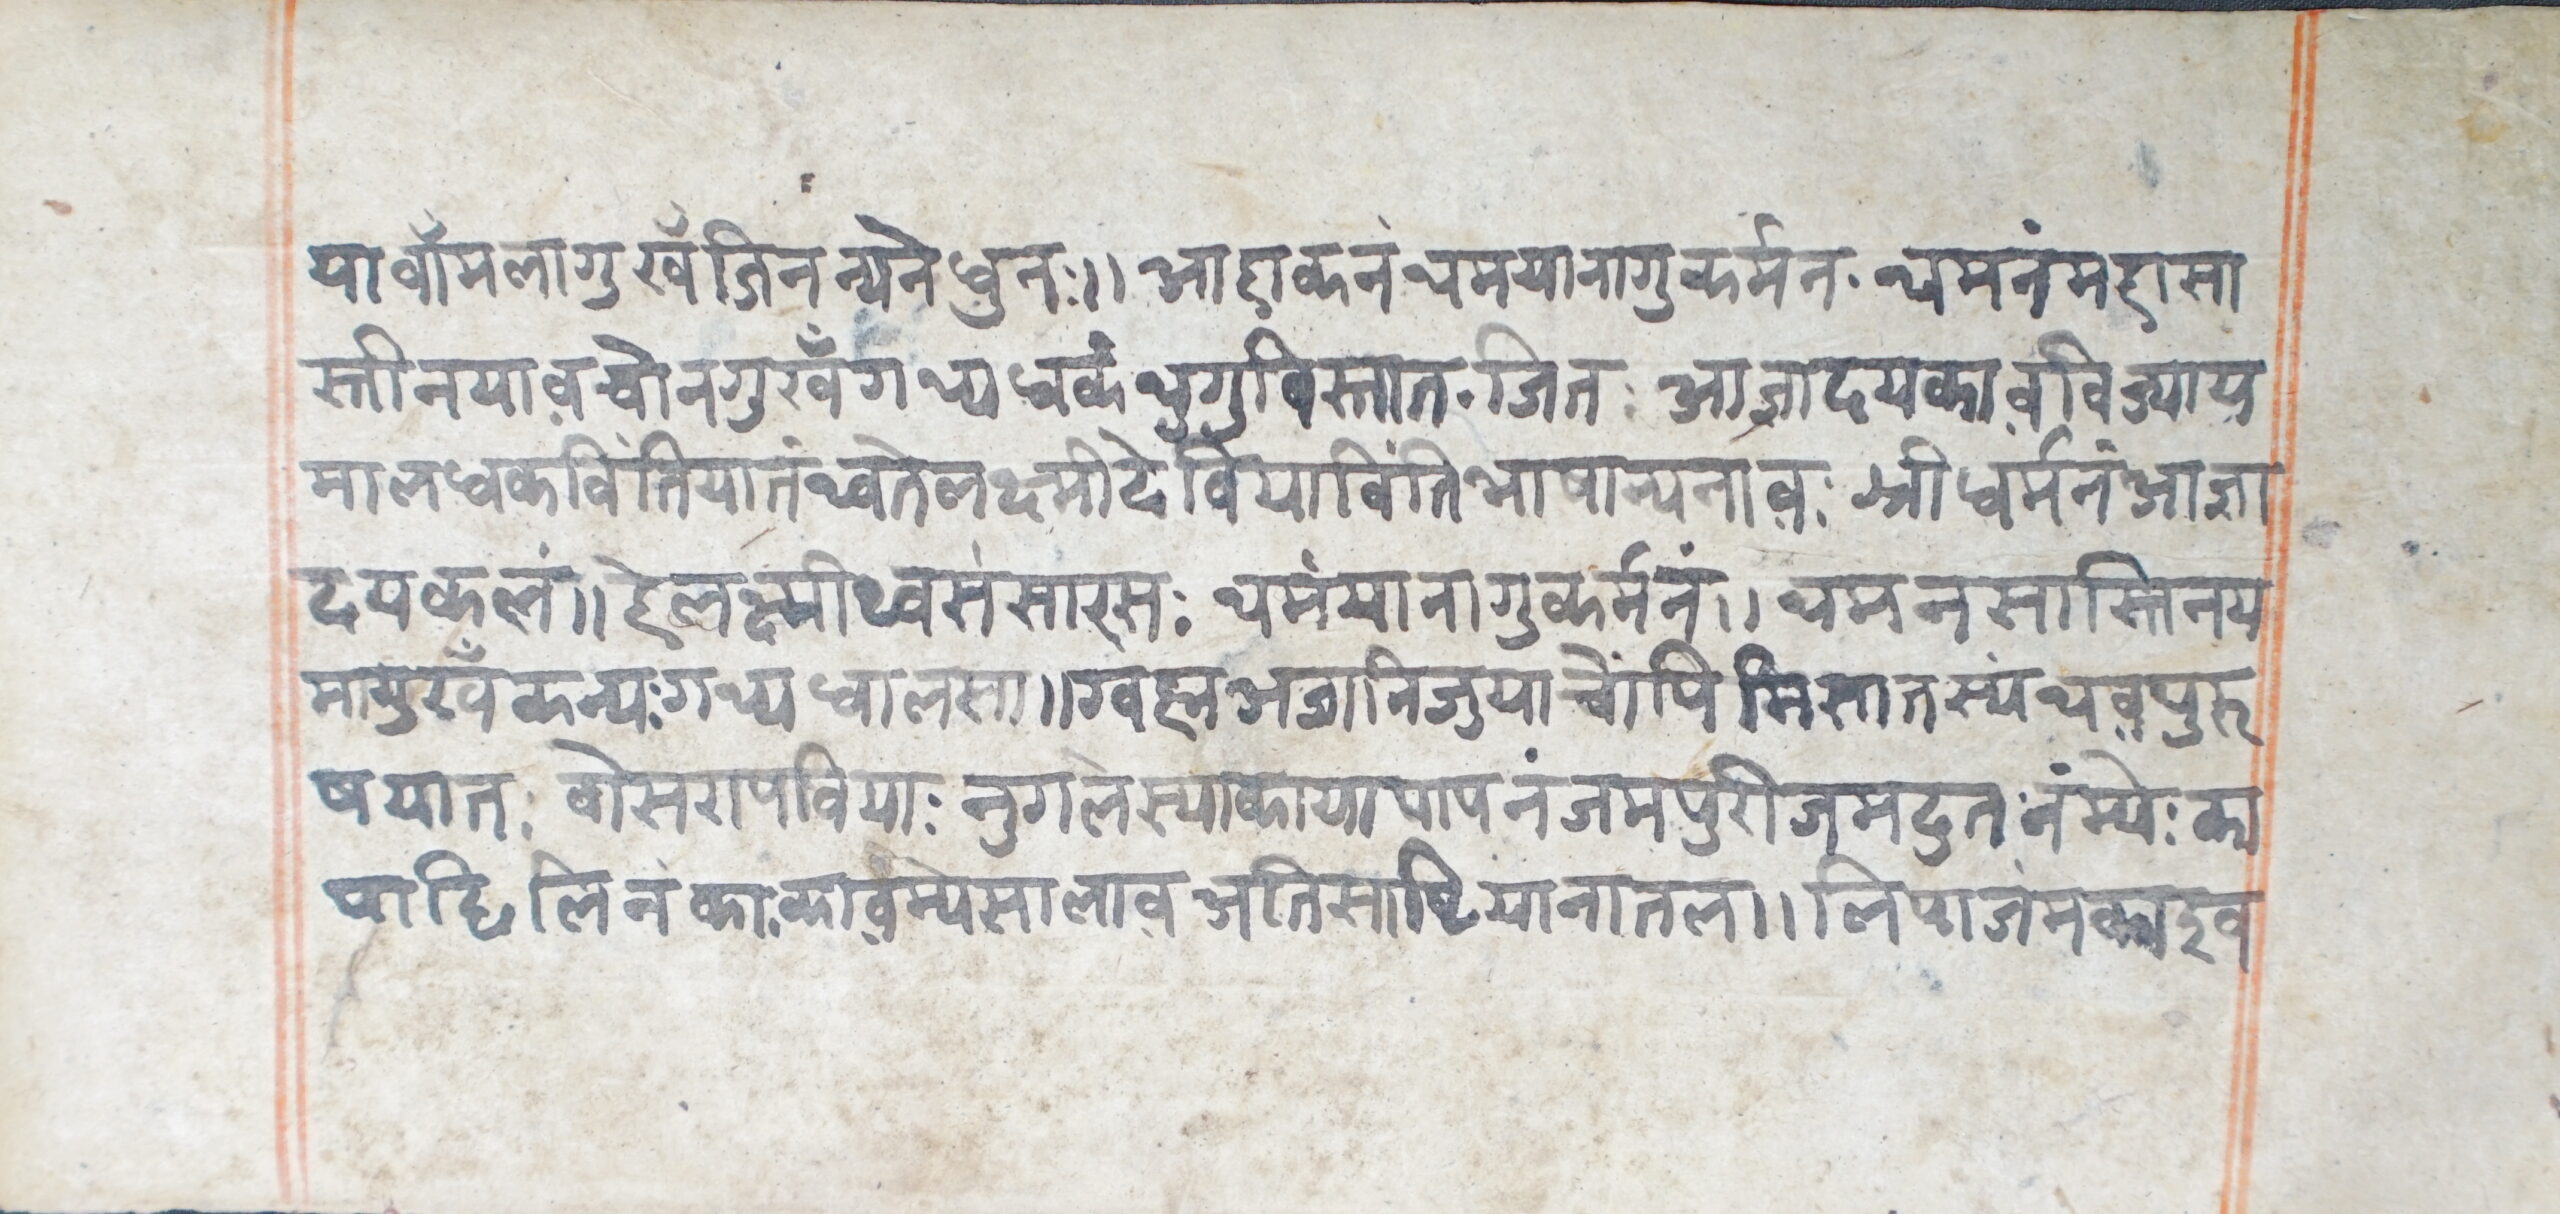 यार्वांमलागुखँजिनन्यनेधुनः॥ आहाकनंथमयानागुकर्मन. थमनंमहासा
स्तीनयाव़चोनगुखँगथ्यधकंथुगुविस्तात.जितः आज्ञादयकाव़विज्याय
मालधकविंतियातंथ्वतेलक्ष्मीदेवियाविंतिभाषान्यनाव़ः श्रीधर्मनंआज्ञा
दयकलं॥ हेलक्ष्मीथ्वसंसारसः थमंयानागुकर्मनं॥ थमनसास्तिनय
मागुखँकन्यःगथ्यधालसा॥ग्वह्मअज्ञानिजुयाचोंपिमिसातस्यंथव़पुरू
षयातः वोसरापवियाः नुगलस्याकायापापनंजमपुरीजमदुतःनंम्येःका
पाहिलिनंकाःकाव़म्येसालाव़अतिसाष्टियानातल॥ लिपाजंमकाइव